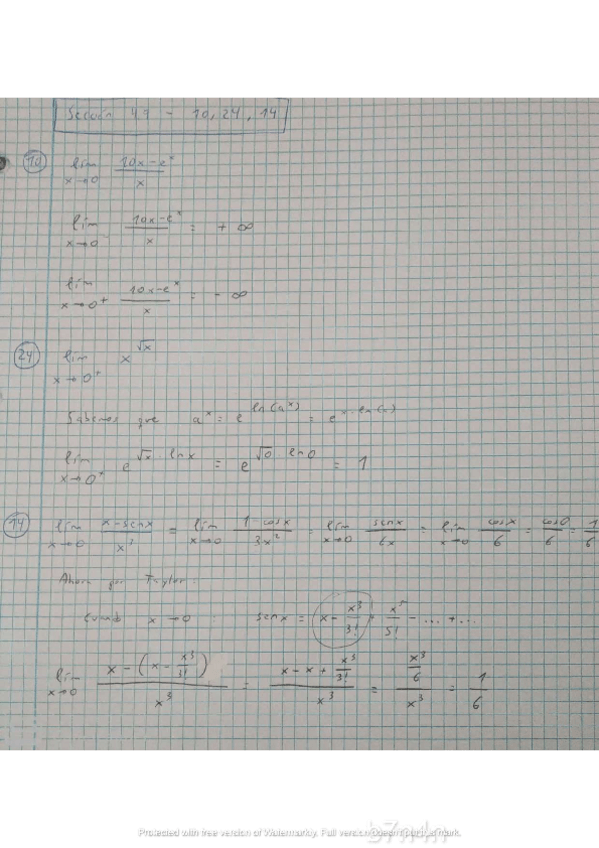 Sección 4.7 - 10, 24, 14
10 lim x→0 (10x-e^x)/x
lim x→0⁻ (10x-e^x)/x = +∞
lim x→0⁺ (10x-e^x)/x = -∞
24 lim x→0⁺ x^√x
Sabemos que a^x = e^ln(a^x) = e^x·ln(a)
lim x→0⁺ e^√x·lnx = e^√0·ln0 = 1
14 lim x→0 (x-senx)/x³ = lim x→0 (1-cosx)/3x² = lim x→0 senx/6x = lim x→0 cosx/6 = cos0/6 = 1/6
Ahora por Taylor:
Cuando x→0 : senx = x - x³/3! + x⁵/5! - ... + ...
lim x→0 (x-(x-x³/3!))/x³ = (x-x+x³/3!)/x³ = (x³/6)/x³ = 1/6
Protected with free version of Watermarkly. Full version doesn't put this mark.